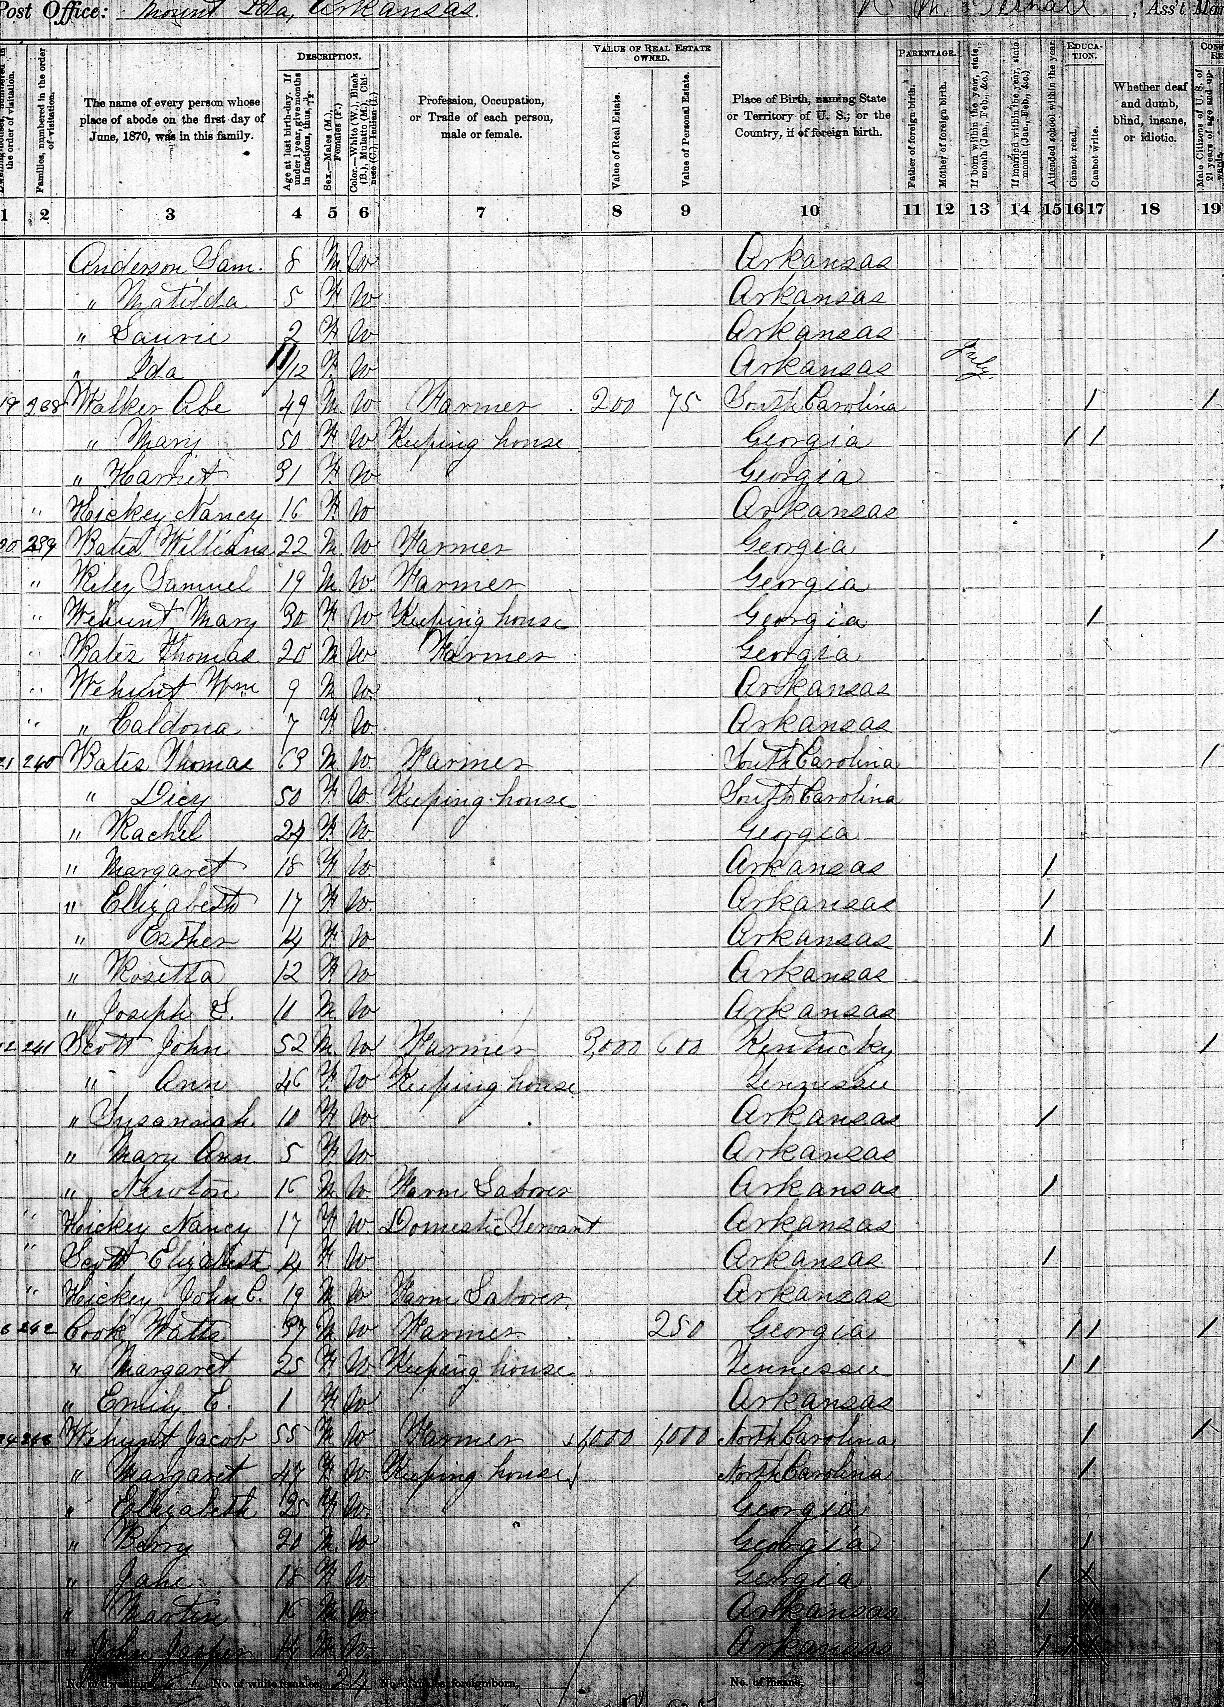 Post Office: Mount Ida, Arkansas.
, Ass't Mar
DESCRIPTION.
VALUE OF REAL ESTATE OWNED.
PARENTAGE.
EDUCATION.
the order of visitation.
Families, numbered in the order of visitation.
The name of every person whose place of abode on the first day of June, 1870, was in this family.
Age at last birth-day. If under 1 year, give months in fractions, thus,
Sex.—Males (M.), Females (F.)
Color.—White (W.), Black (B.), Mulatto (M.), Chinese (C.), Indian (I.)
Profession, Occupation, or Trade of each person, male or female.
Value of Real Estate.
Value of Personal Estate.
Place of Birth, naming State or Territory of U. S.; or the Country, if of foreign birth.
Father of foreign birth.
Mother of foreign birth.
If born within the year, state month (Jan., Feb., &c.)
If married within the year, state month (Jan., Feb., &c.)
Attended school within the year.
Cannot read.
Cannot write.
Whether deaf and dumb, blind, insane, or idiotic.
Male Citizens of U. S. of 21 years of age and up-
1 2 3 4 5 6 7 8 9 10 11 12 13 14 15 16 17 18 19
Anderson Sam. 8 M W Arkansas
" Matilda 5 F W Arkansas
" Laurie 2 F W Arkansas
" Ida 11/12 F W Arkansas July
19 238 Walker Abe 49 M W Farmer 200 75 South Carolina / /
" Mary 50 F W Keeping house Georgia / /
" Harriet 31 F W Georgia
" Hickey Nancy 16 F W Arkansas
20 239 Bates William 22 M W Farmer Georgia /
" Riley Samuel 19 M W Farmer Georgia
" Wehunt Mary 30 F W Keeping house Georgia /
" Bates Thomas 20 M W Farmer Georgia
" Wehunt Wm 9 M W Arkansas
" Caldona 7 F W Arkansas
21 240 Bates Thomas 63 M W Farmer South Carolina /
" Dicy 50 F W Keeping house South Carolina
" Rachel 24 F W Georgia
" Margaret 18 F W Arkansas /
" Elizabeth 17 F W Arkansas /
" Esther 14 F W Arkansas /
" Rosetta 12 F W Arkansas
" Joseph S. 11 M W Arkansas
22 241 Scott John 52 M W Farmer 3,000 600 Kentucky /
" Ann 46 F W Keeping house Tennessee
" Susannah 10 F W Arkansas /
" Mary Ann 5 F W Arkansas
" Newton 16 M W Farm Laborer Arkansas /
" Hickey Nancy 17 F W Domestic Servant Arkansas
" Scott Elizabeth 14 F W Arkansas /
" Hickey John C. 19 M W Farm Laborer Arkansas
242 Cook Watts 37 M W Farmer 250 Georgia / / /
" Margaret 25 F W Keeping house Tennessee / /
" Emily E. 1 F W Arkansas
Wehunt Jacob 55 M W Farmer 1,000 1,000 North Carolina / /
" Margaret 47 F W Keeping house North Carolina /
" Elizabeth 35 F W Georgia
" Berry 20 M W Georgia /
" Jane 18 F W Georgia / /
" Martin 16 M W Arkansas / /
" John Jasper 14 M W Arkansas / / /
No. of white females, 24 No. of males, foreign born,